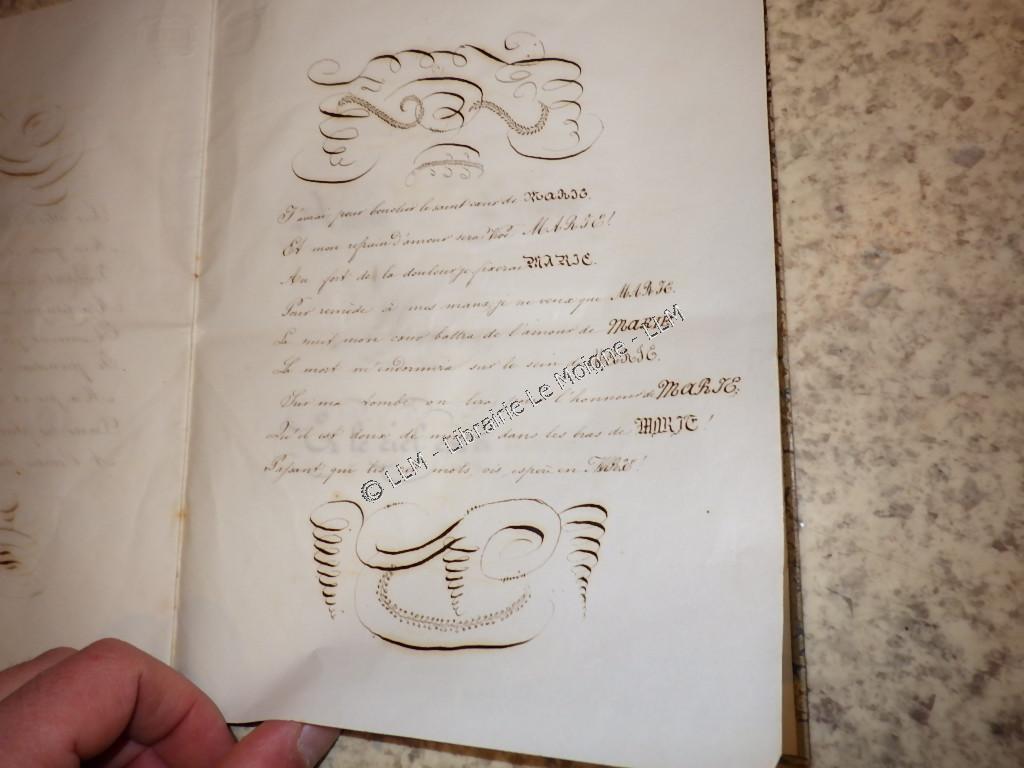 J'aurai pour bouclier le saint cœur de MARIE.
Et mon refrain d'amour sera MARIE!
Au fort de la douleur je MARIE.
Pour remède à mes maux, je ne veux que MARIE.
La nuit, mon cœur battra de l'amour de MARIE
La mort m'endormira sur le sein de MARIE.
Sur ma tombe on lira l'honneur de MARIE,
Qu'il est doux de dans les bras de MARIE!
Passant, qui lis mots, vis, espère en
© LLM - Librairie Le Moigne - LLM